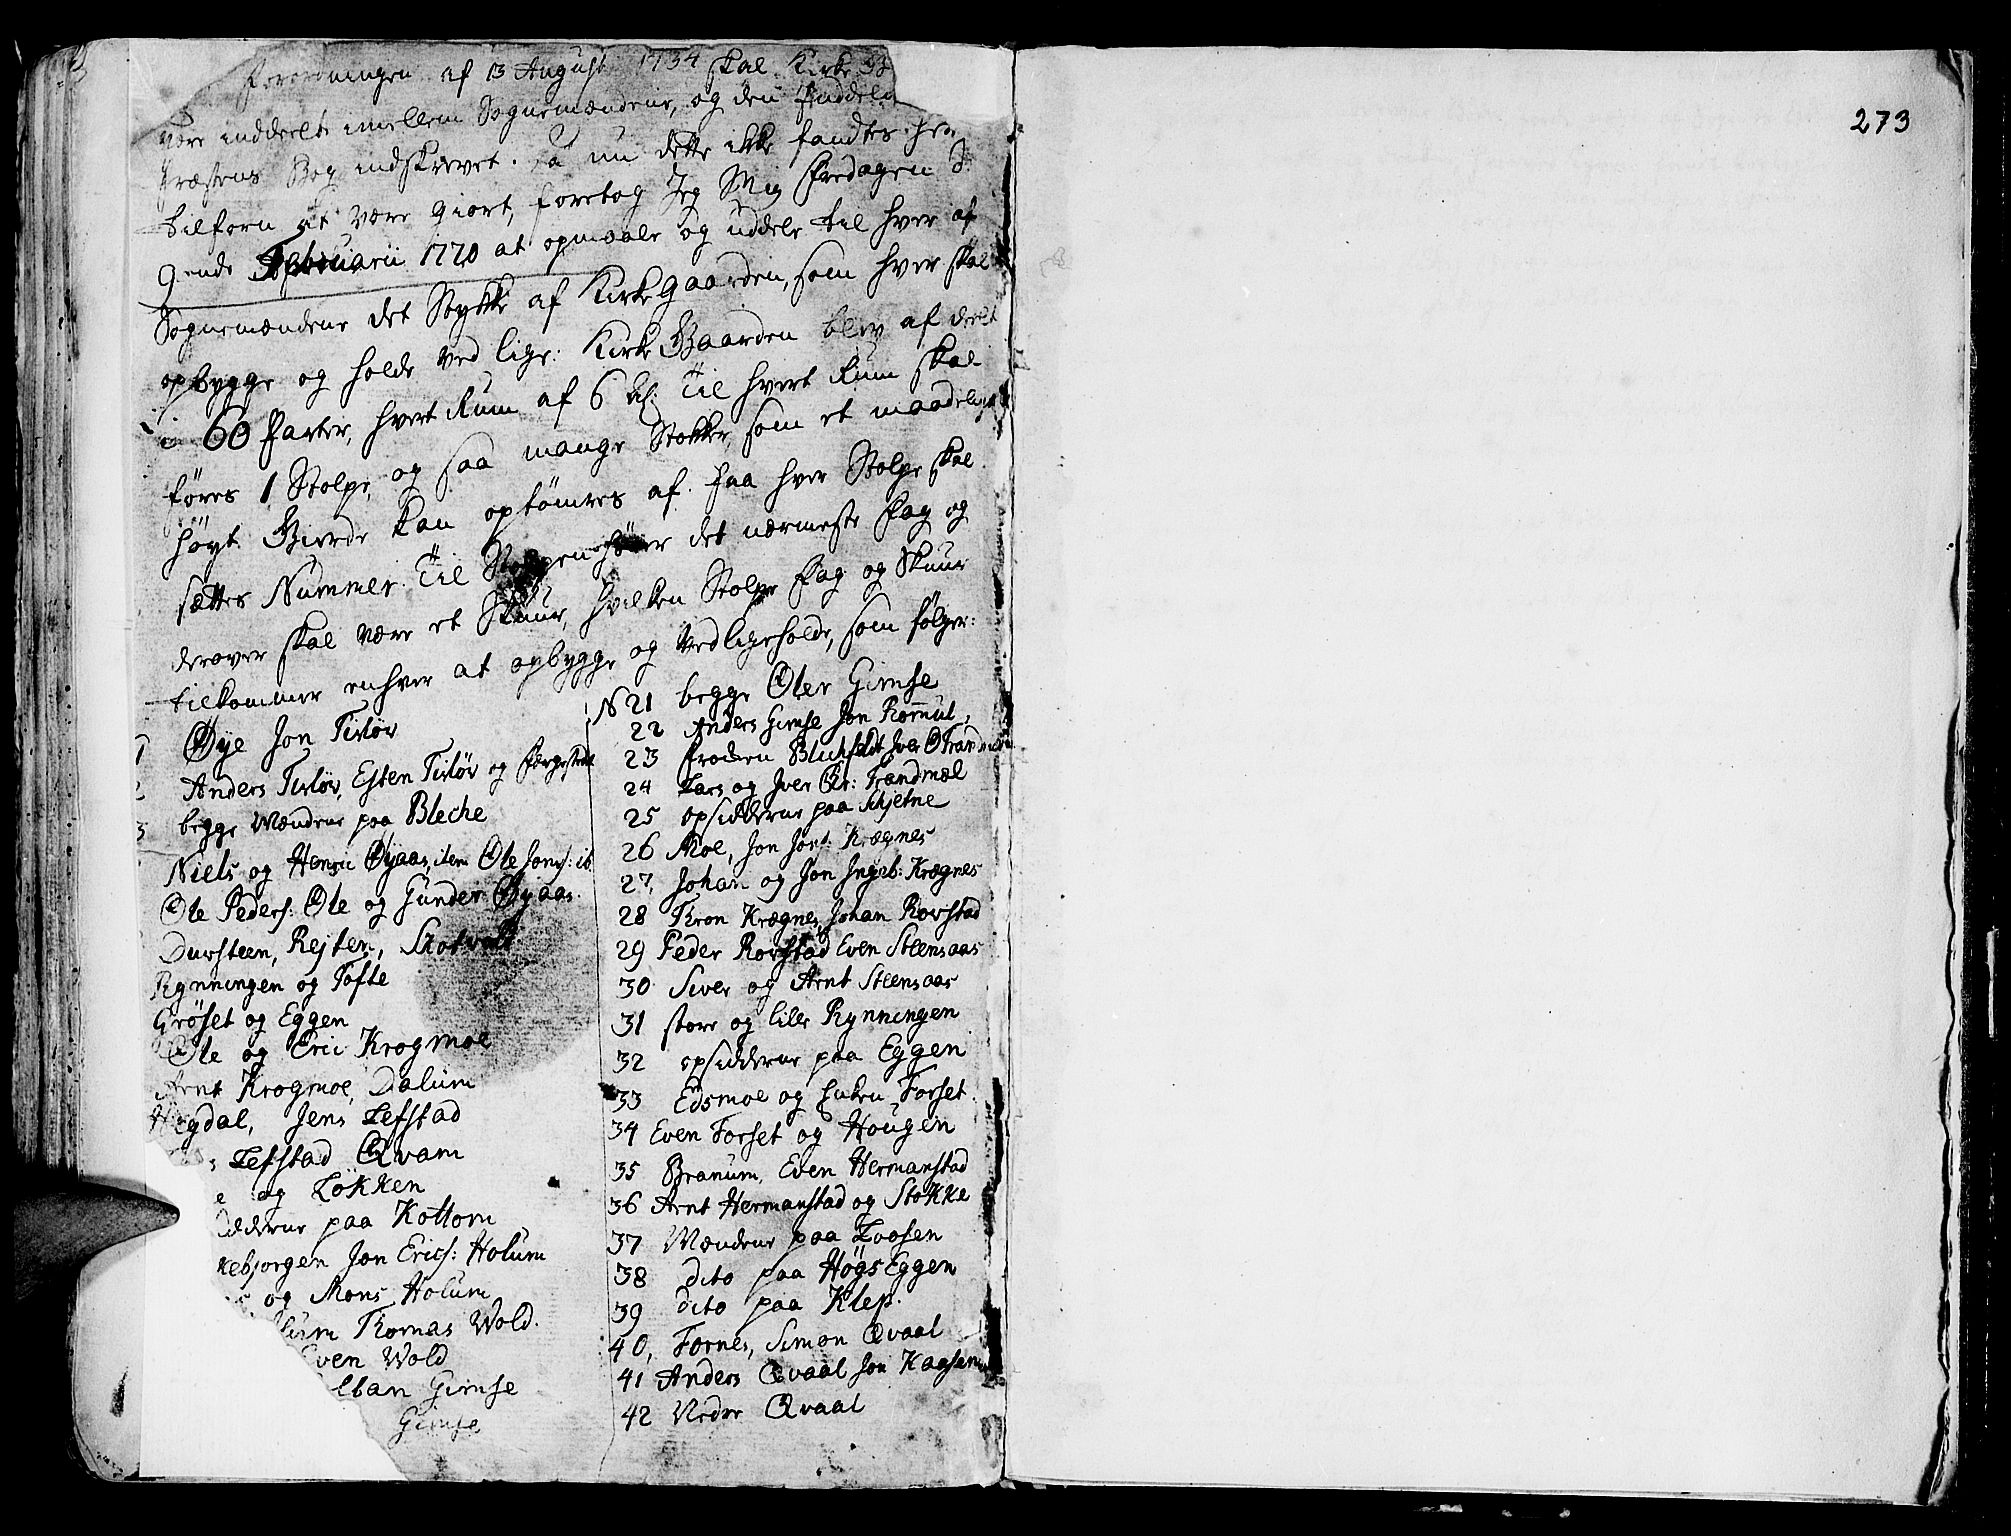 Forordningen af 13 August 1734 skal Kirke B
være inddeelt imellem Sognemændene, og den Inddeln
Præstens Bog indskrevet. Da nu dette ikke fandtes her
tilforn at være giort, foretog Jeg Mig Fredagen d.
9ende Februarii 1770 at opmaale og uddele til hver af
Sognemændene det Stykke af KirkeGaarden, som hver skal
opbygge og holde ved lige: KirkeGaarden blev afdeelt
i 60 Parter, hvert Rum af 6 Al: Til hvert Rum skal
føres 1 Stolpe, og saa mange Stokker, som et maadelig
høyt Gierde kan optømres af. Paa hver Stolpe skal
sættes Nummer. Til Stolpen hører det nærmeste Fag og
derover skal være et Skuur, hvilken Stolpe Fag og Skuur
tilkommer enhver at opbygge og vedligeholde, som følger:
1 Øye Jon Tirløv
2 Anders Tirløv, Esten Tirløv og Færgestad
3 begge Mændene paa Bleche
Niels og Henri Øyaas, item Ole Jons: ib
Ole Peders: Ole og Gunder Øyaas.
Dursteen, Rejten, Skotvold
Rynningen og Tofte
Grøset og Eggen
Ole og Eric Krogmoe
Arnt Krogmoe, Dalum
Hegdal, Jens Lefstad
Lefstad Qvam
og Løkken
idderne paa Kottom
kebjorgen Jon Erics: Holum
og Mons Holum
lum Thomas Wold.
Even Wold
Gimse
Gimse
N 21 begge Oler Gimse
22 Anders Gimse Jon Rommul,
23 Proven Blichfeldt Iver O Trandmæl
24 Lars og Iver Or: Trandmæl
25 opsidderne paa Schjetne
26 Moe, Jon Jons: Krægnes
27, Johan og Jon Ingeb: Krægnes
28 Thron Krægnes Johan Rovstad
29 Peder Rovstad Even Steensaas
30 Siver og Arnt Steensaas
31 store og lille Rynningen
32 opsidderne paa Eggen
33 Edsmoe og Enken Forset
34 Even Forset og Hougen
35 Branum, Even Hermanstad
36 Arnt Hermanstad og Stokke
37 Mændene paa Loosen
38 dito paa HøgsEggen
39 dito paa Klep.
40, Fornes, Simon Qvaal
41 Anders Qvaal Jon Kaasen
42 Nedre Qvaal
273